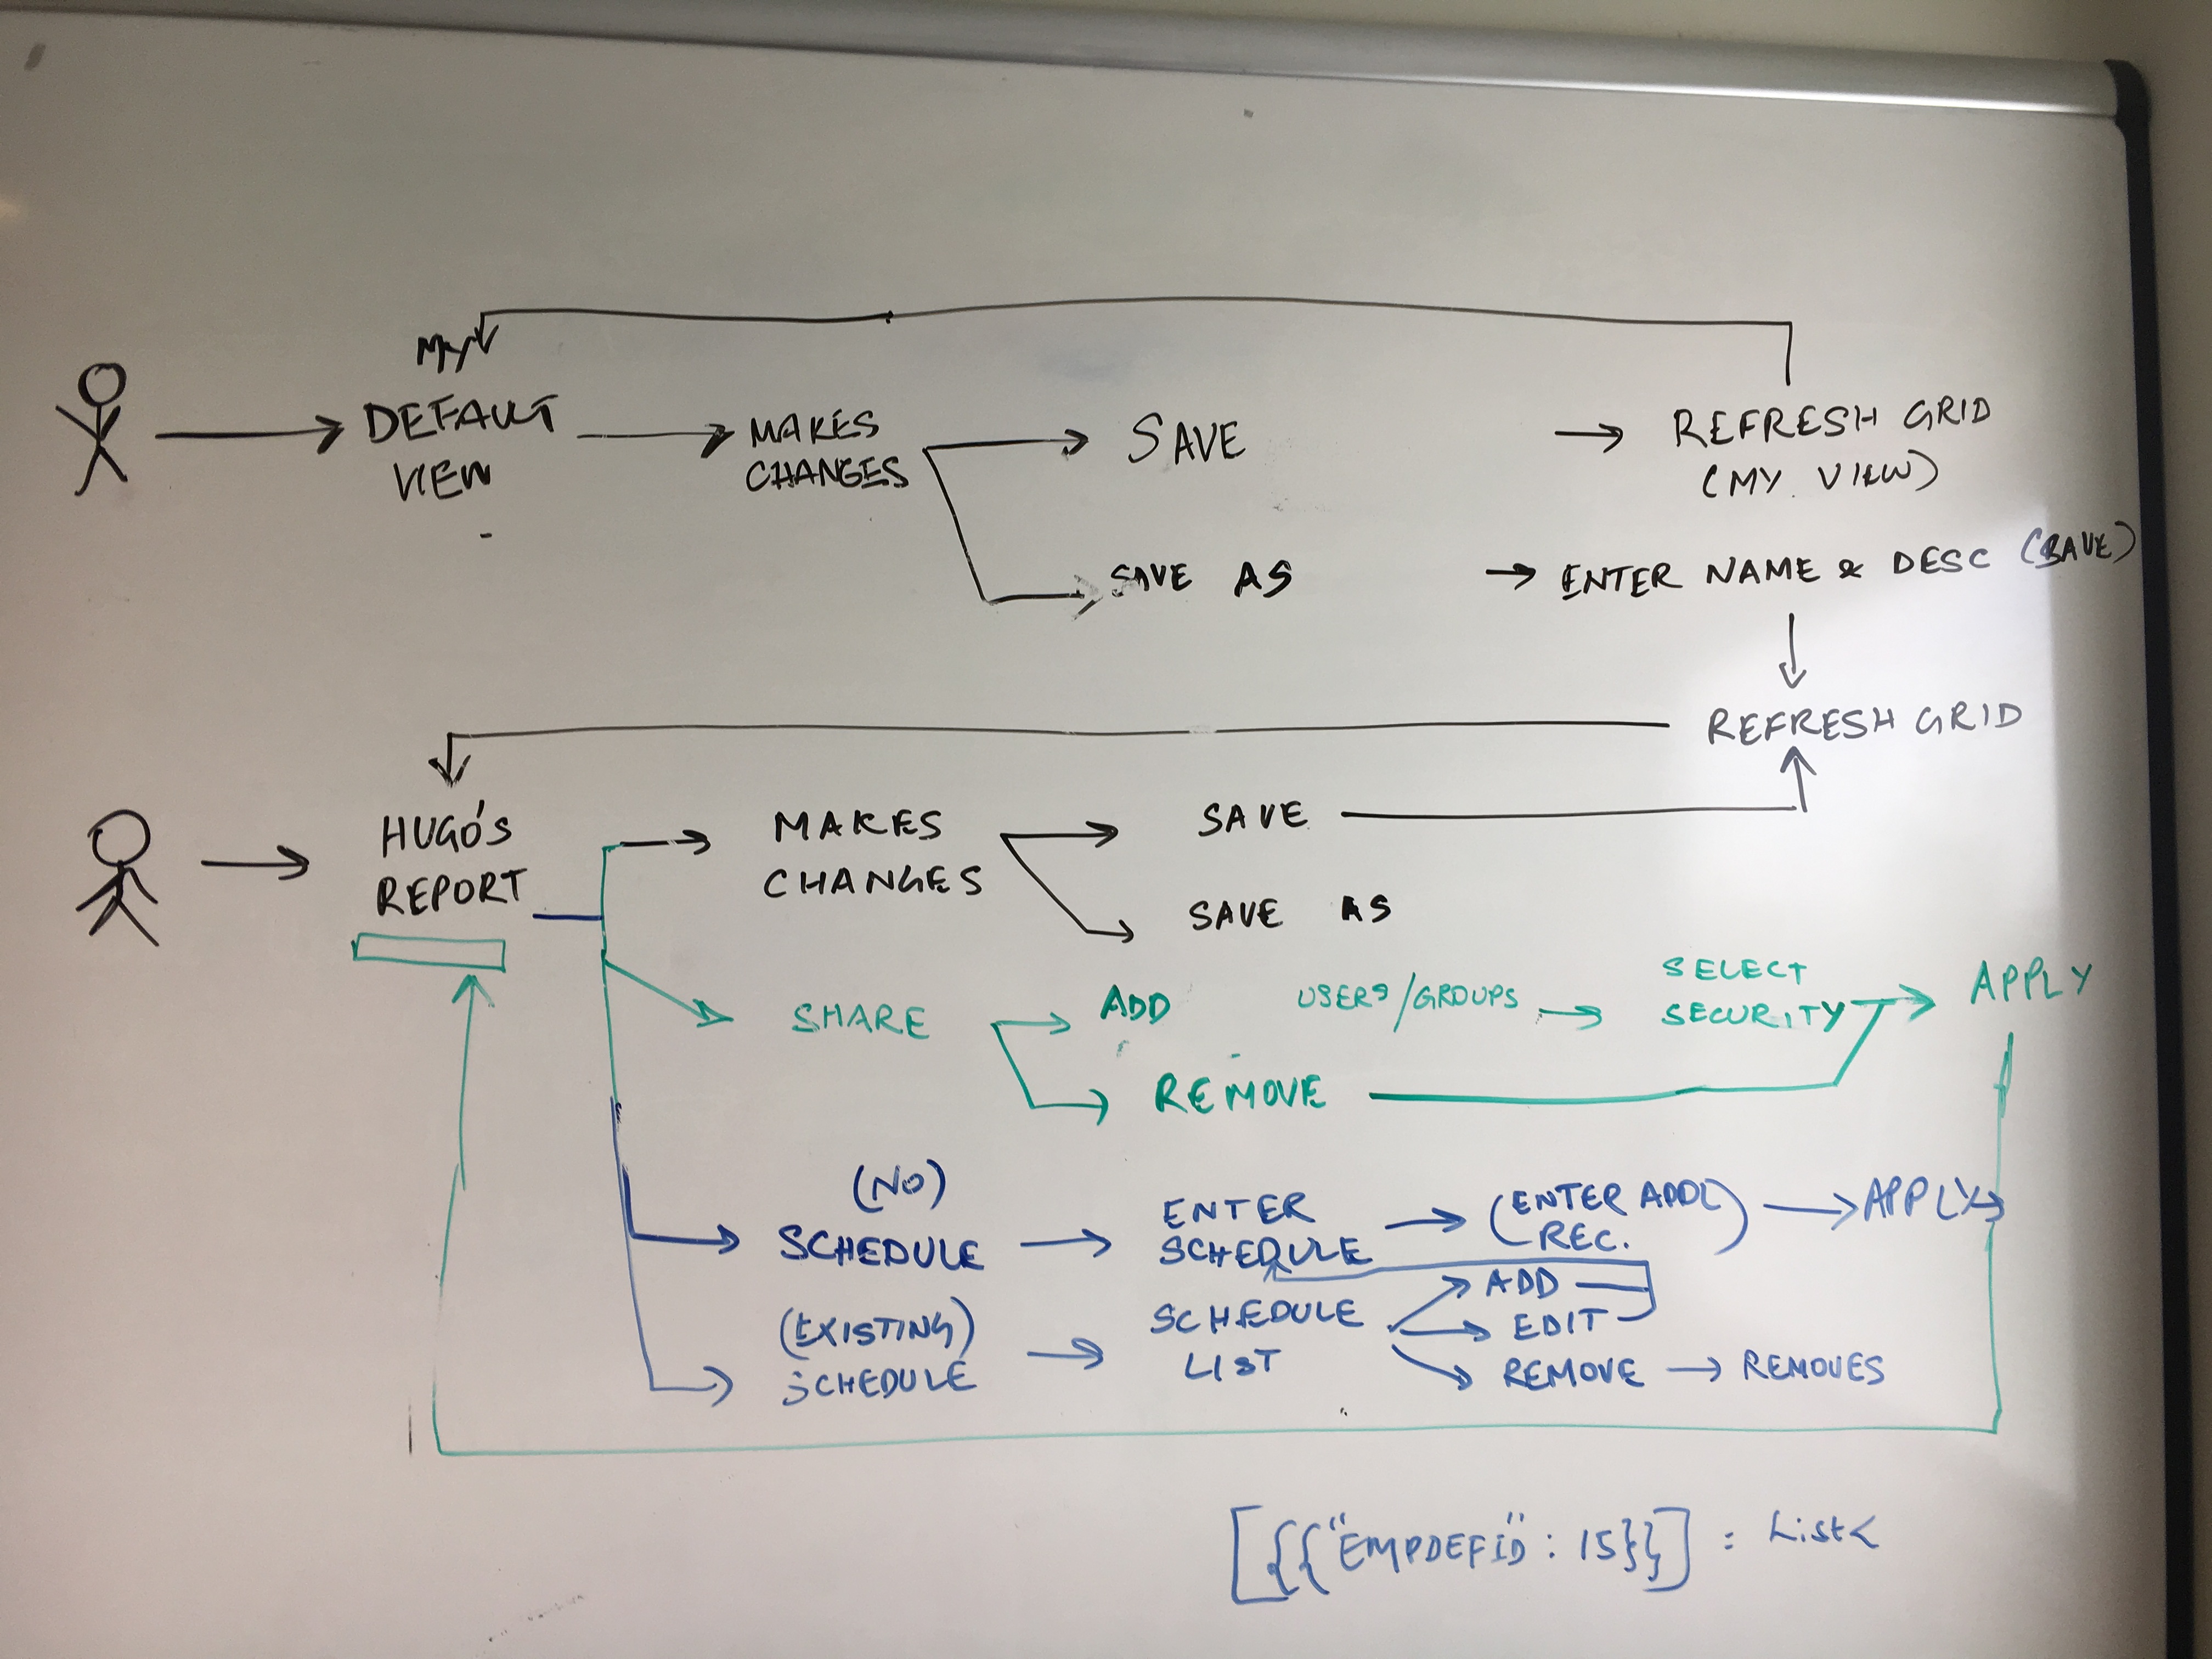 MY
DEFAULT
VIEW
MAKES
CHANGES
SAVE
REFRESH GRID
(MY VIEW)
SAVE AS
ENTER NAME & DESC (SAVE)
REFRESH GRID
HUGO'S
REPORT
MAKES
CHANGES
SAVE
SAVE AS
SHARE
ADD USERS/GROUPS
SELECT
SECURITY
APPLY
REMOVE
(NO)
SCHEDULE
ENTER
SCHEDULE
(ENTER ADDL
REC.)
APPLY
(EXISTING)
SCHEDULE
SCHEDULE
LIST
ADD
EDIT
REMOVE
REMOVES
[{{"EMPDEFID": 15}}] : List<